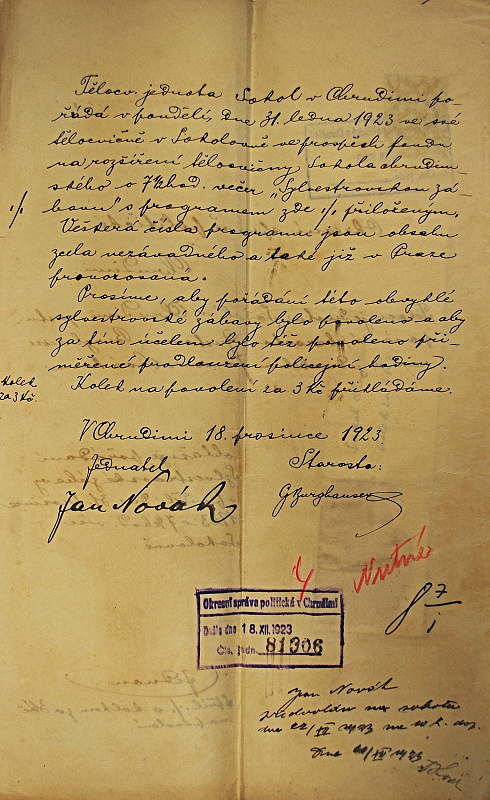 Tělocv. jednota Sokol v Chrudimi po-
řádá v pondělí, dne 31. ledna 1923 ve své
tělocvičně v Sokolovně ve prospěch fondu
na rozšíření tělocvičny Sokola chrudim-
ského o 7½ hod. večer „Sylvestrovskou zá-
bavu" s programem zde ·/· přiloženým.
·/·
Veškerá čísla programu jsou obsahu
zcela nezávadného a také již v Praze
provozovaná.
Prosíme, aby pořádání této obvyklé
sylvestrovské zábavy bylo povoleno a aby
za tím účelem bylo též povoleno při-
měřené prodloužení policejní hodiny.
Kolek
za 3 Kč.
Kolek na povolení za 3 Kč přikládáme.
V Chrudimi 18. prosince 1923.
Jednatel
Starosta:
Jan Novák
G Burghauser
Okresní správa politická v Chrudimi
Došlo dne 18. XII. 1923
Čís. jedn. 81306
8 7/I
Jan Novák
předvolán na sobotu